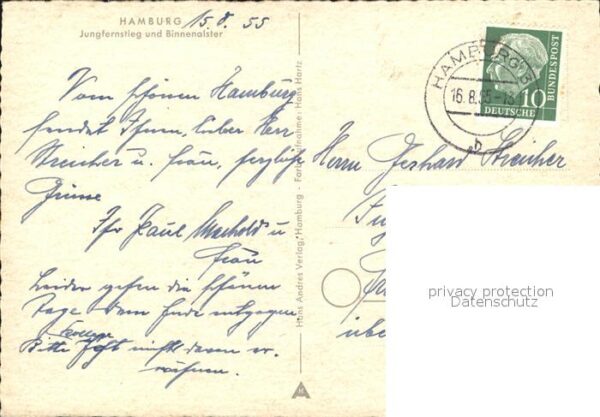 HAMBURG
Jungfernstieg und Binnenalster
15.8.55
Vom schönen Hamburg
sendet Ihnen, lieber Herr
Streicher u. Frau, herzliche
Grüsse
Ihr Paul u
Frau
Leider gehen die schönen
Tage dem Ende entgegen
Bitte nichts davon er-
wähnen.
Hans Andres Verlag, Hamburg - Farbaufnahme: Hans Hartz
HAMBURG
16.8.55
b
10
DEUTSCHE
BUNDESPOST
Herrn Gerhard Streicher
über
privacy protection
Datenschutz